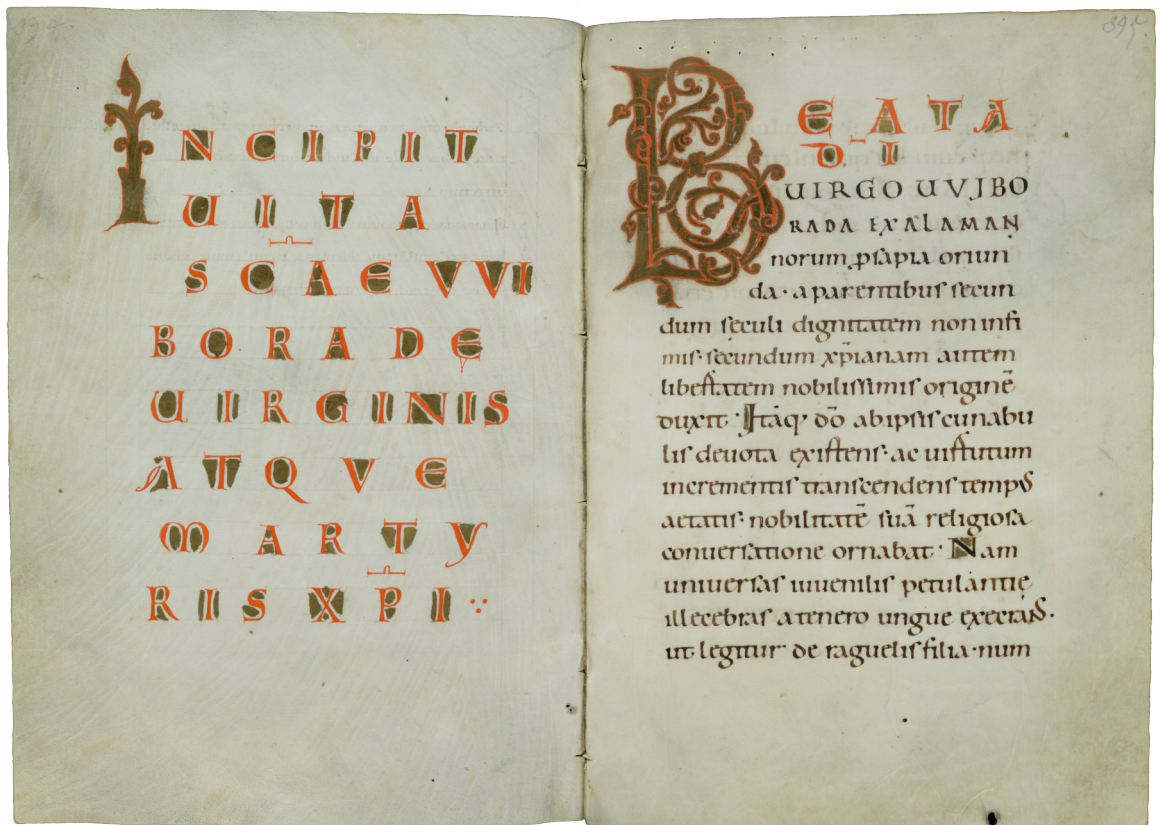 394
INCIPIT
UITA
SC̄AE VVI
BORADE
UIRGINIS
ATQVE
MARTY
RIS XP̄I
395.
BEATA
D̄I
UIRGO UVIBO
RADA EX ALAMAN
norum ꝓsapia oriun
da· a parentibus secun
dum seculi dignitatem non infi
mis· secundum xp̄ianam autem
libertatem nobilissimis originē
duxit· Itaq· dō ab ipsis cunabu
lis deuota existens· ac uirtutum
incrementis transcendens temp᷒
aetatis· nobilitatē suā religiosa
conuersatione ornabat· Nam
universas iuuenilis petulantię
illecebras a tenero ungue execrans·
ut legitur de raguelis filia· num